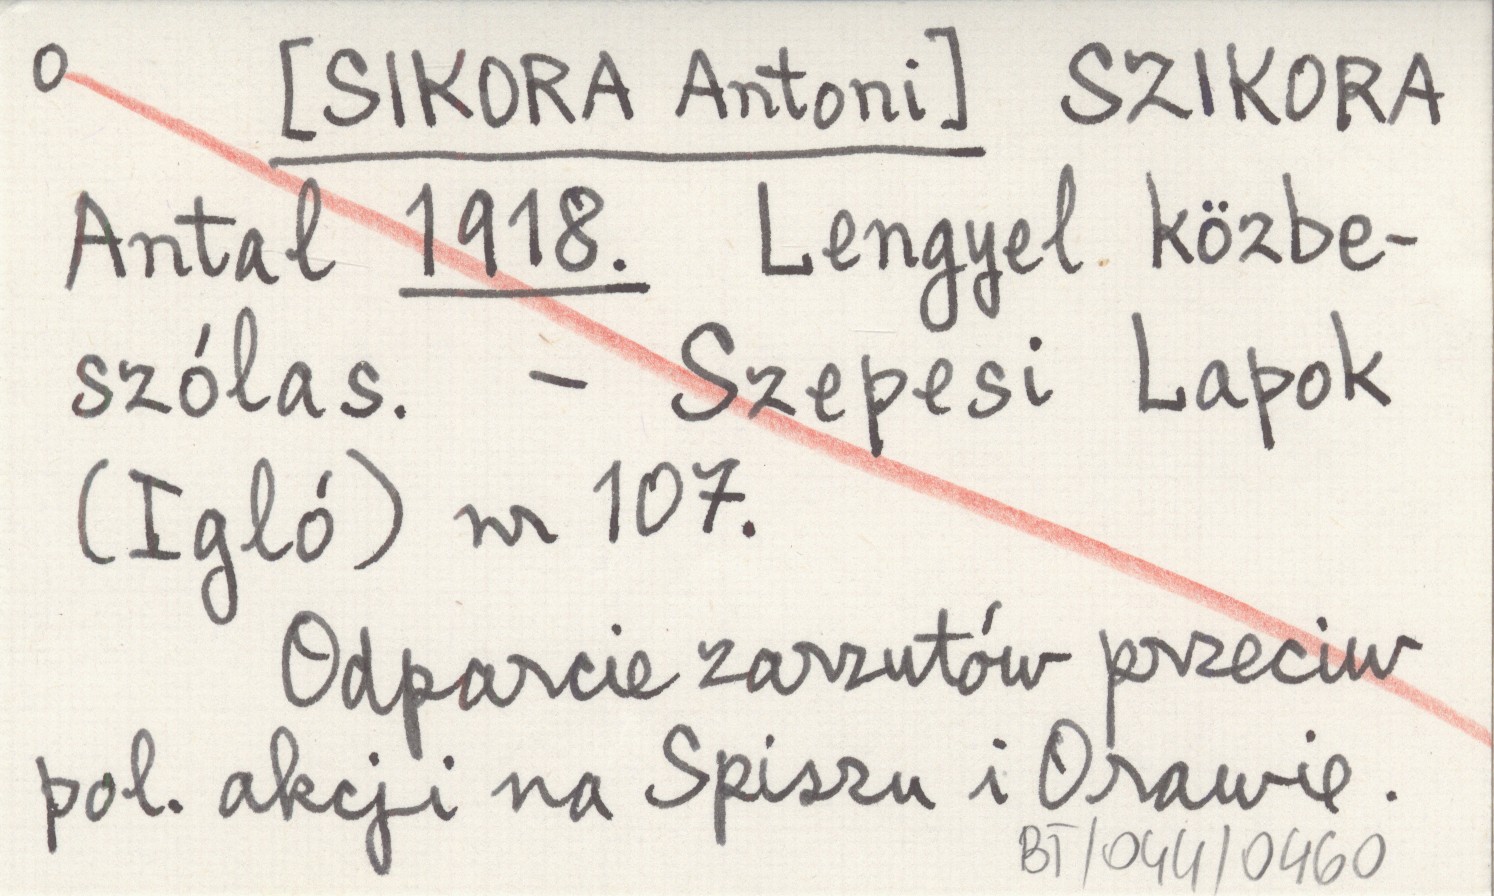 O [SIKORA Antoni] SZIKORA
Antal 1918. Lengyel közbe-
szólas. - Szepesi Lapok
(Igló) nr 107.
Odparcie zarzutów przeciw
pol. akcji na Spiszu i Orawie.
BT/044/0460